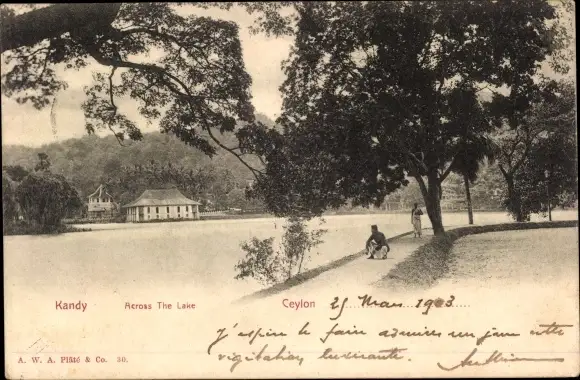 Kandy Across The Lake Ceylon 25 Mars 1903
J'espère le faire admirer un jour cette
végitation luxuriante.
A. W. A. Plâté & Co. 30.